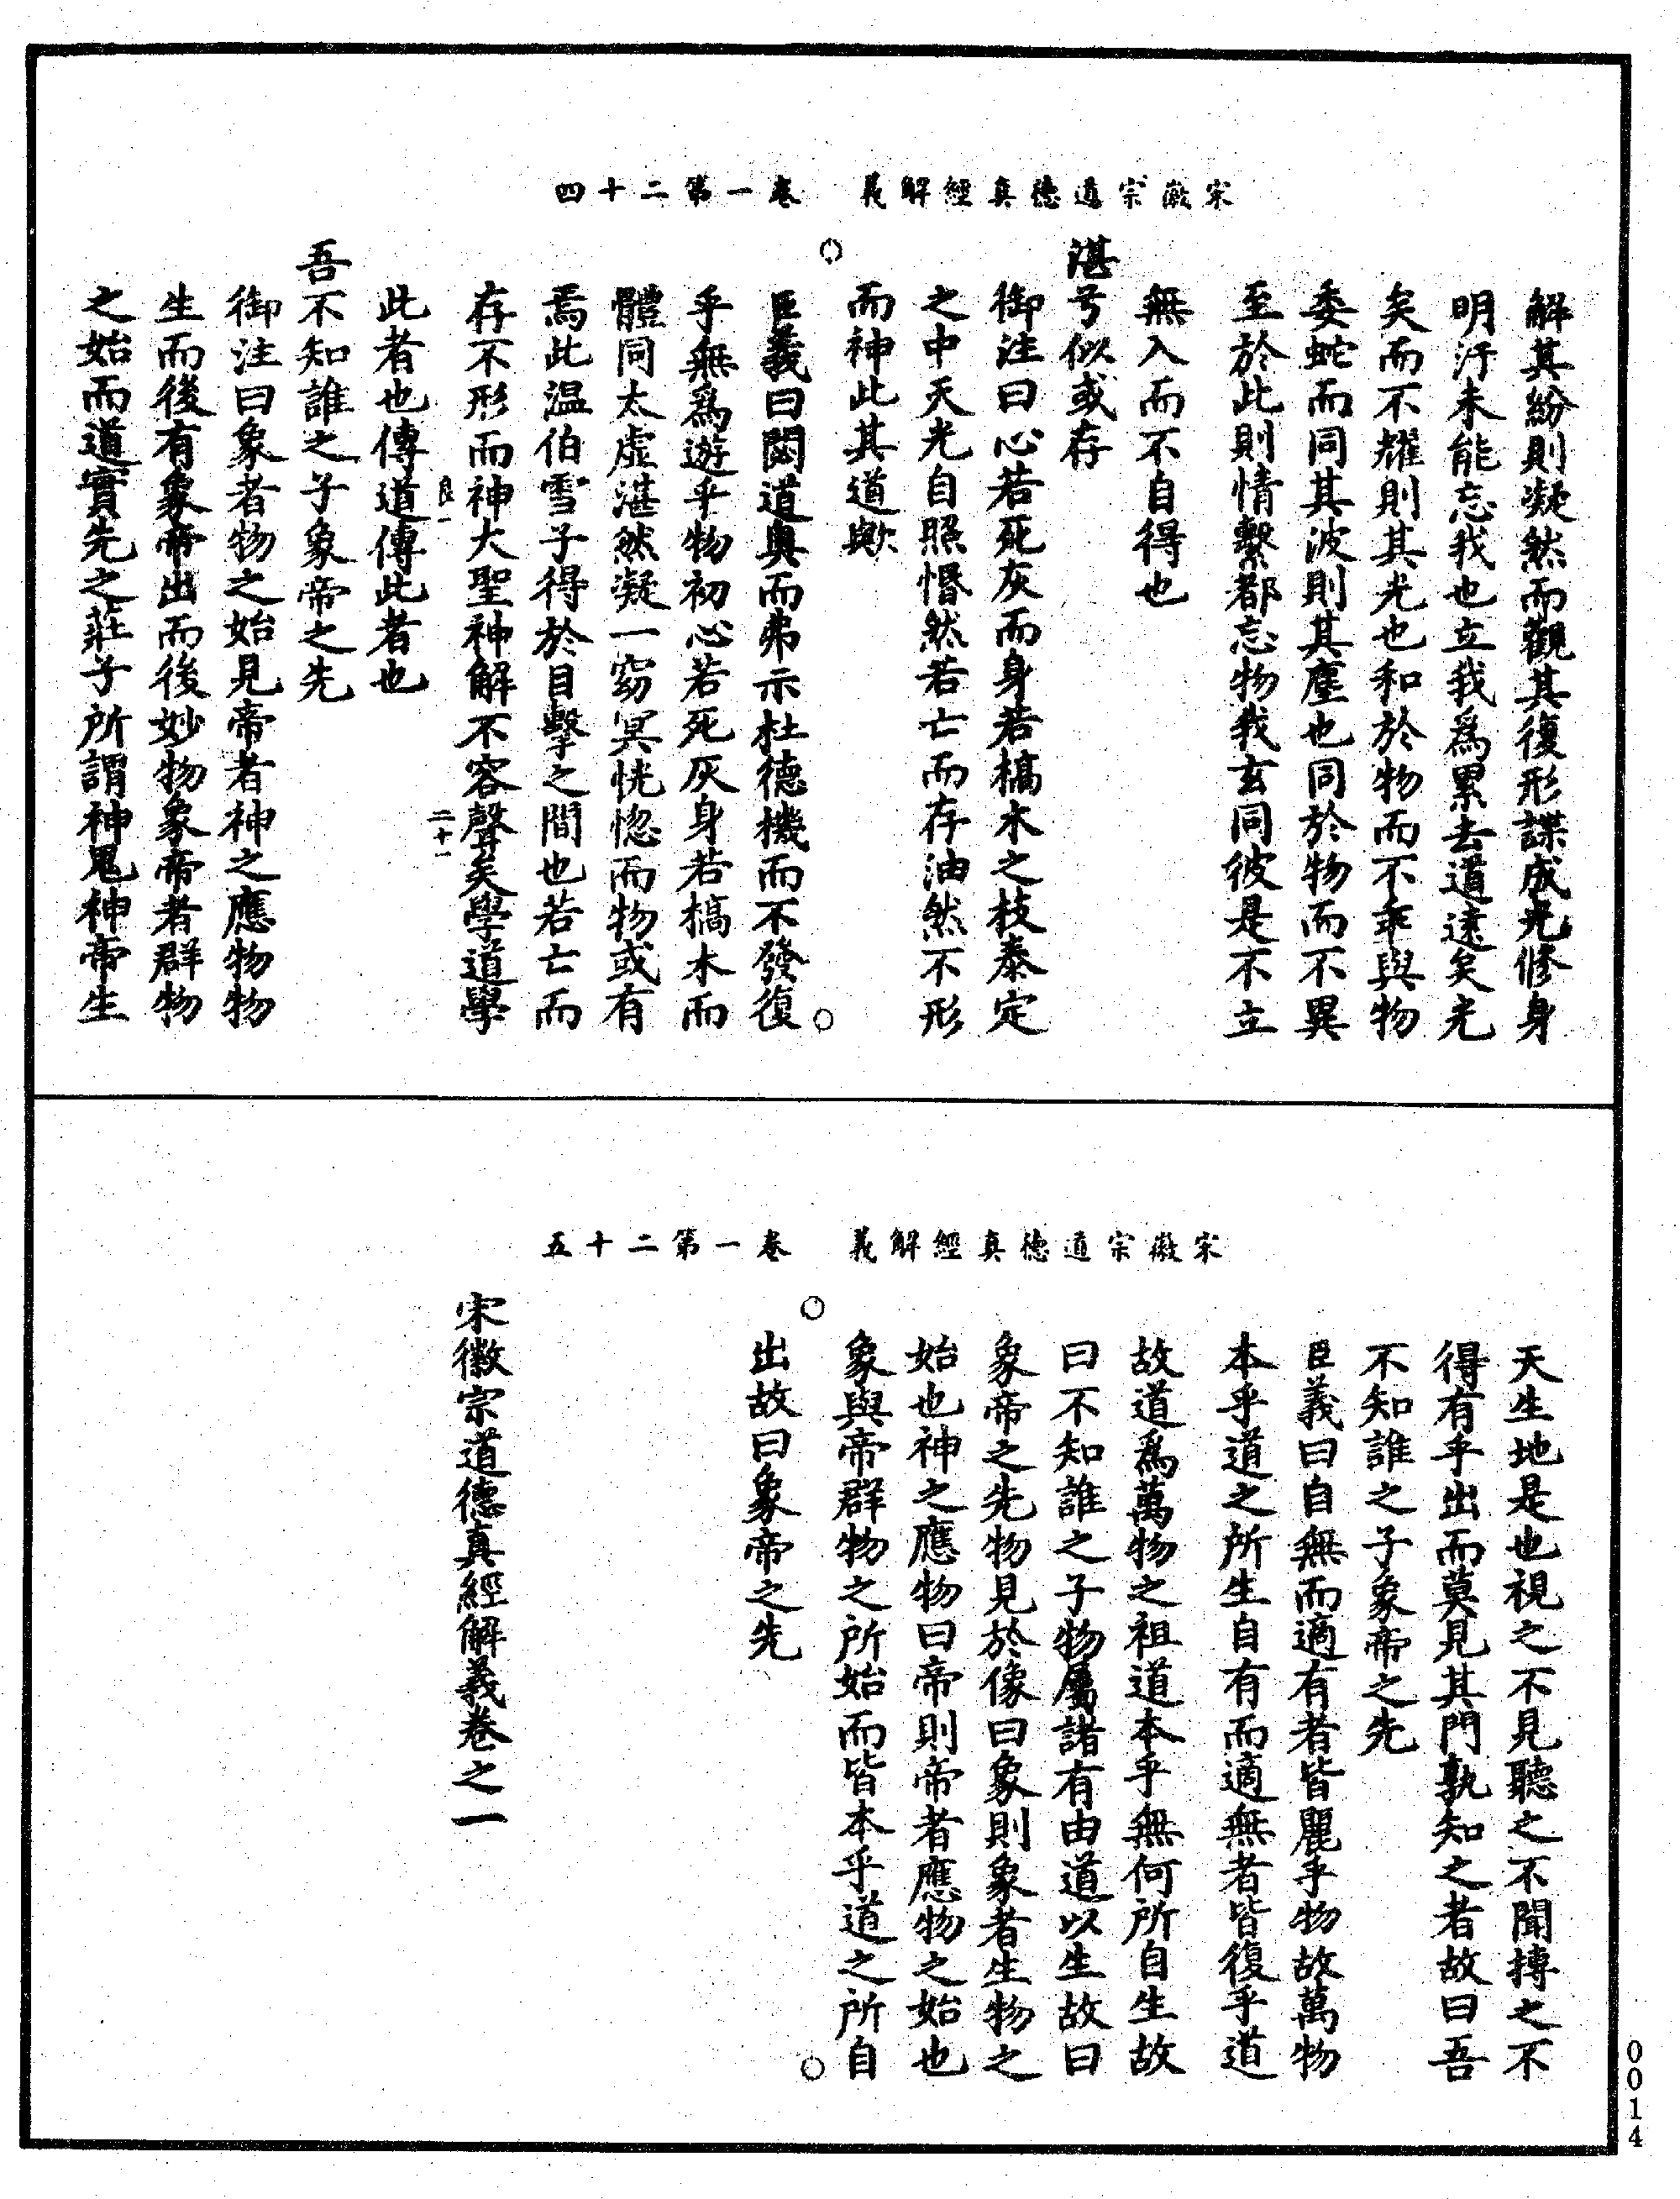 宋徽宗道德真經解義　卷一第二十四
解其紛則凝然而觀其復形諜成光修身
明汙未能忘我也立我爲累去道遠矣光
矣而不耀則其光也和於物而不乖與物
委蛇而同其波則其塵也同於物而不異
至於此則情繫都忘物我玄同彼是不立
無入而不自得也
湛兮似或存
御注曰心若死灰而身若槁木之枝泰定
之中天光自照惛然若亡而存油然不形
而神此其道歟
臣義曰閎道奧而弗示杜德機而不發復
乎無爲遊乎物初心若死灰身若槁木而
體同太虛湛然凝一窈冥恍惚而物或有
焉此温伯雪子得於目擊之間也若亡而
存不形而神大聖神解不容聲矣學道學
良一
二十一
此者也傳道傳此者也
吾不知誰之子象帝之先
御注曰象者物之始見帝者神之應物物
生而後有象帝出而後妙物象帝者群物
之始而道實先之莊子所謂神鬼神帝生
宋徽宗道德真經解義　卷一第二十五
天生地是也視之不見聽之不聞摶之不
得有乎出而莫見其門孰知之者故曰吾
不知誰之子象帝之先
臣義曰自無而適有者皆麗乎物故萬物
本乎道之所生自有而適無者皆復乎道
故道爲萬物之祖道本乎無何所自生故
曰不知誰之子物屬諸有由道以生故曰
象帝之先物見於像曰象則象者生物之
始也神之應物曰帝則帝者應物之始也
象與帝群物之所始而皆本乎道之所自
出故曰象帝之先
宋徽宗道德真經解義卷之一
0014